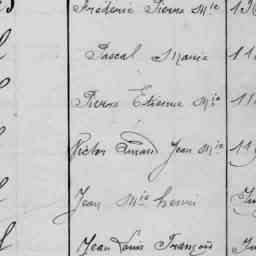 Frédéric Pierre Mie
Pascal Marie 11
Pierre Etienne Mie 11
Victor Jean Mie 11
Jean Mie henri
Jean Louis François